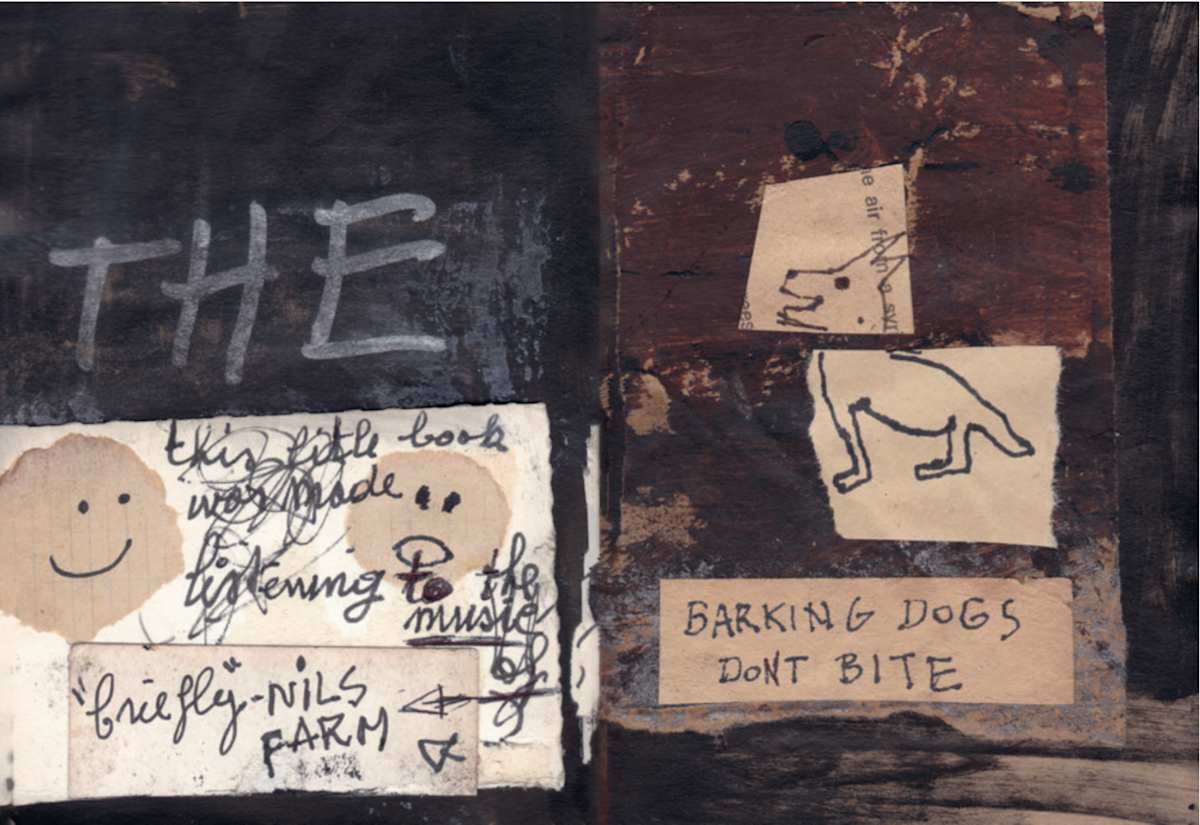 THE
this little book
was made
listening to the
music
of
"briefly"-NILS
FARM
he air from a svi
BARKING DOGS
DONT BITE